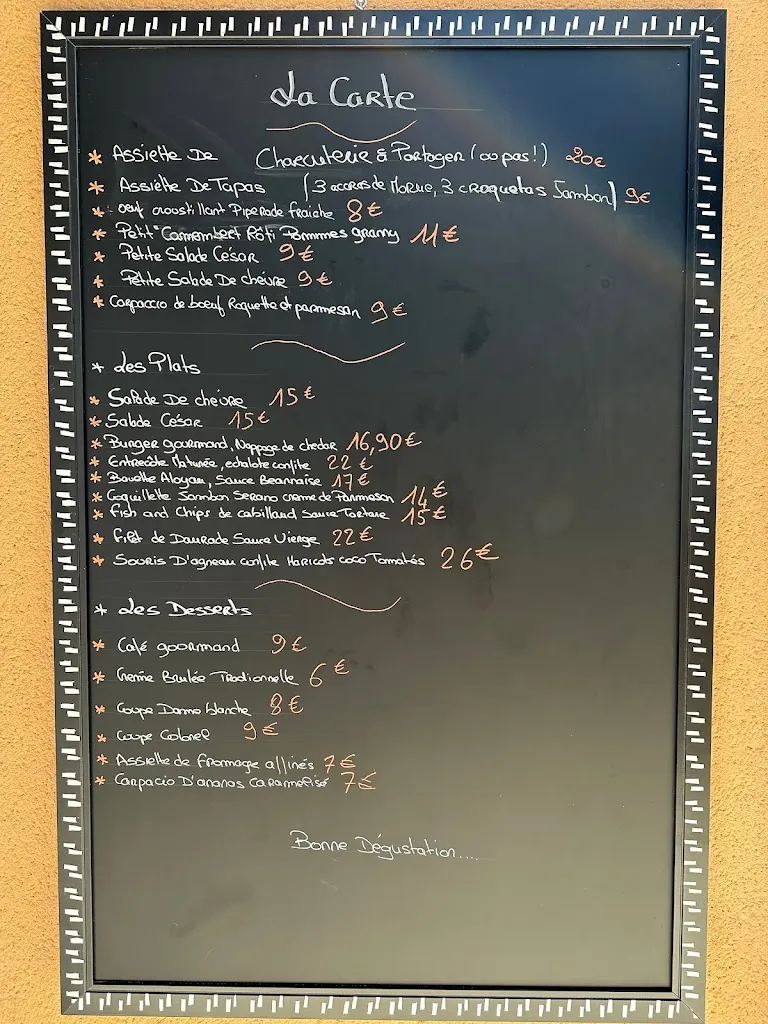 La Carte
* Assiette De Charcuterie à Partager (ou pas!) 20€
* Assiette De Tapas (3 accras de Morue, 3 croquetas Jambon) 9€
* oeuf croustillant Piperade fraiche 8€
* Petit Camembert Rôti Pommes granny 11€
* Petite Salade César 9€
* Petite Salade De chèvre 9€
* Carpaccio de boeuf Roquette et parmesan 9€
* Les Plats
* Salade De chèvre 15€
* Salade César 15€
* Burger gourmand, Nappage de chedar 16,90€
* Entrecôte Maturée, echalote confite 22€
* Bavette Aloyau, Sauce Bearnaise 17€
* Coquillette Jambon Serano creme de Parmesan 14€
* Fish and Chips de cabillaud Sauce Tartare 15€
* Filet de Daurade Sauce Vierge 22€
* Souris D'agneau confite Haricots coco Tomatés 26€
* Les Desserts
* Café gourmand 9€
* Creme Brulée Traditionnelle 6€
* Coupe Dame blanche 8€
* Coupe Colonel 9€
* Assiette de fromage affinés 7€
* Carpacio D'ananas Caramelisé 7€
Bonne Dégustation....